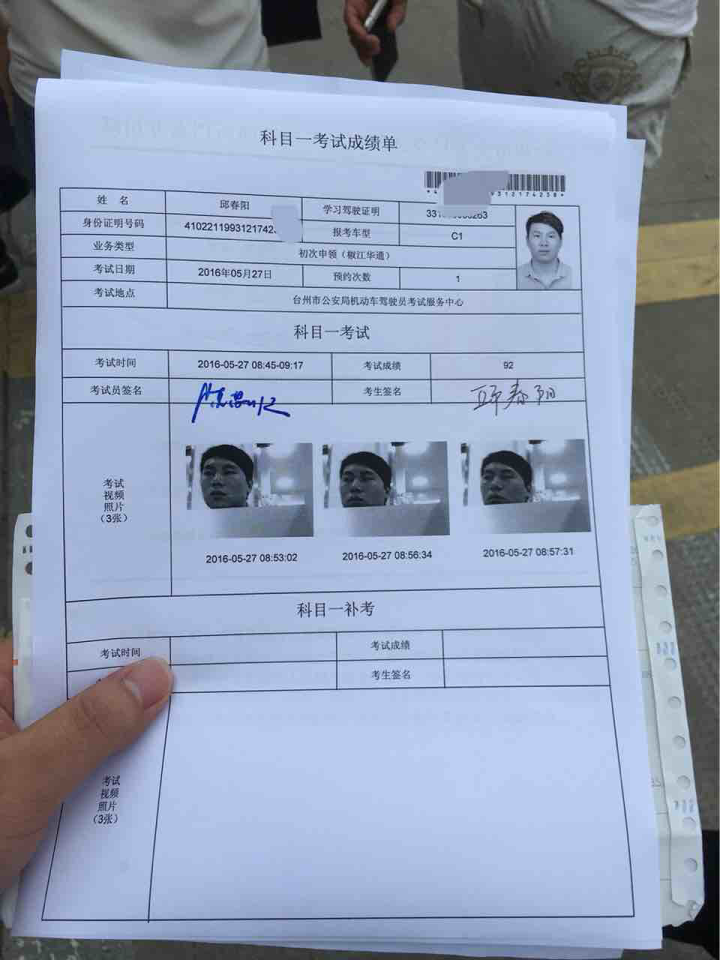 科目一考试成绩单
姓 名 邱春阳 学习驾驶证明
身份证明号码 报考车型 C1
业务类型 初次申领(椒江华通)
考试日期 2016年05月27日 预约次数 1
考试地点 台州市公安局机动车驾驶员考试服务中心
科目一考试
考试时间 2016-05-27 08:45-09:17 考试成绩 92
考试员签名 考生签名 邱春阳
考试
视频
照片
(3张)
2016-05-27 08:53:02 2016-05-27 08:56:34 2016-05-27 08:57:31
科目一补考
考试时间 考试成绩
考生签名
考试
视频
照片
(3张)